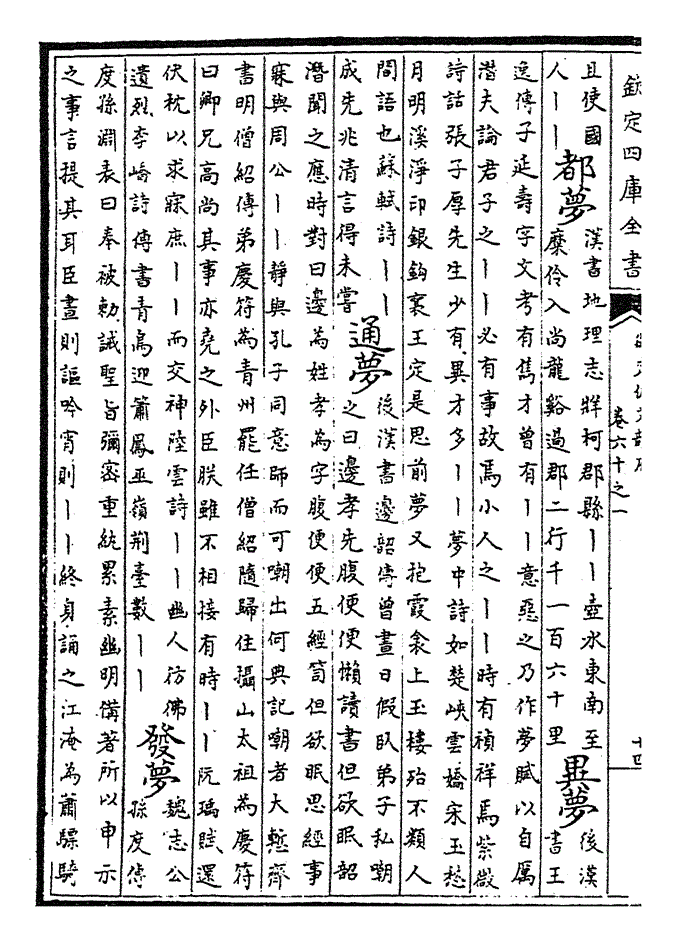 欽定四庫全書
卷六十之一
且使國
人丨丨
都夢
漢書地理志牂柯郡縣丨丨壺水東南至
麋伶入尚龍谿過郡二行千一百六十里
異夢
後漢
書王
逸傳子延壽字文考有雋才曾有丨丨意惡之乃作夢賦以自厲
潛夫論君子之丨丨必有事故焉小人之丨丨時有禎祥焉紫薇
詩話張子厚先生少有異才多丨丨夢中詩如楚峽雲嬌宋玉愁
月明溪淨印銀鈎襄王定是思前夢又抱霞衾上玉樓殆不類人
間語也蘇軾詩丨丨
成先兆清言得未嘗
通夢
後漢書邊韶傳曾晝日假臥弟子私嘲
之曰邊孝先腹便便懶讀書但欲眠韶
潛聞之應時對曰邊為姓孝為字腹便便五經笥但欲眠思經事
寐與周公丨丨靜與孔子同意師而可嘲出何典記嘲者大慙齊
書明僧紹傳弟慶符為青州罷任僧紹隨歸住攝山太祖為慶符
曰卿兄高尚其事亦堯之外臣朕雖不相接有時丨丨阮瑀賦還
伏枕以求寐庶丨丨而交神陸雲詩丨丨幽人彷彿
遺烈李嶠詩傳書青鳥迎簫鳳巫嶺荊臺數丨丨
發夢
魏志公
孫度傳
度孫淵表曰奉被勅誡聖旨彌密重紈累素幽明備著所以申示
之事言提其耳臣晝則謳吟宵則丨丨終身誦之江淹為蕭驃騎